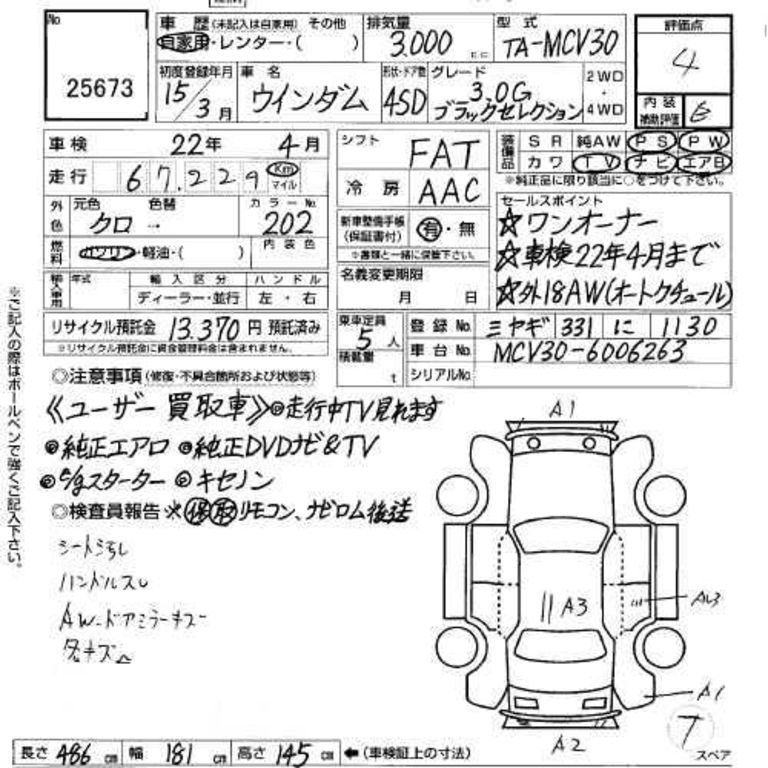 No 25673
車歴 (未記入は自家用) その他
自家用・レンター・( )
排気量 3.000 c.c.
型式 TA-MCV30
評価点 4
初度登録年月 15/3月
車名 ウインダム
形状・ドア数 4SD
グレード 3.0G ブラックセレクション
2WD・4WD
内装補助評価
車検 22年 4月
走行 67.229 Km マイル
外色 元色 クロ → 色替 カラーNo. 202
燃料 ガソリン・軽油・( ) 内装色
輸入車用 年式 輸入区分 ディーラー・並行 ハンドル 左・右
リサイクル預託金 13.370 円 預託済み
※リサイクル預託金に資金管理料金は含まれません。
シフト FAT
冷房 AAC
新車整備手帳(保証書付) 有・無
※書類と一緒に保管下さい。
名義変更期限 月 日
装備品 SR 純AW PS PW
カワ TV ナビ エアB
※純正品に限り該当に○をつけて下さい。
セールスポイント
☆ワンオーナー
☆車検22年4月まで
☆外18AW(オートクチュール)
乗車定員 5人
積載量 t
登録No. ミヤギ 331 に 1130
車台No. MCV30-6006263
シリアルNo.
◎注意事項(修復・不具合箇所および状態等)
《ユーザー買取車》◎走行中TV見れます
◎純正エアロ ◎純正DVDナビ&TV
◎e/gスターター ◎キセノン
◎検査員報告 ※保取リモコン、ナビロム後送
ハンドルスレ
AW-ドアミラーキズ
A1
A3
A1
A2
スペア
長さ 486 cm 幅 181 cm 高さ 145 cm ←(車検証上の寸法)
※ご記入の際はボールペンで強くご記入下さい。